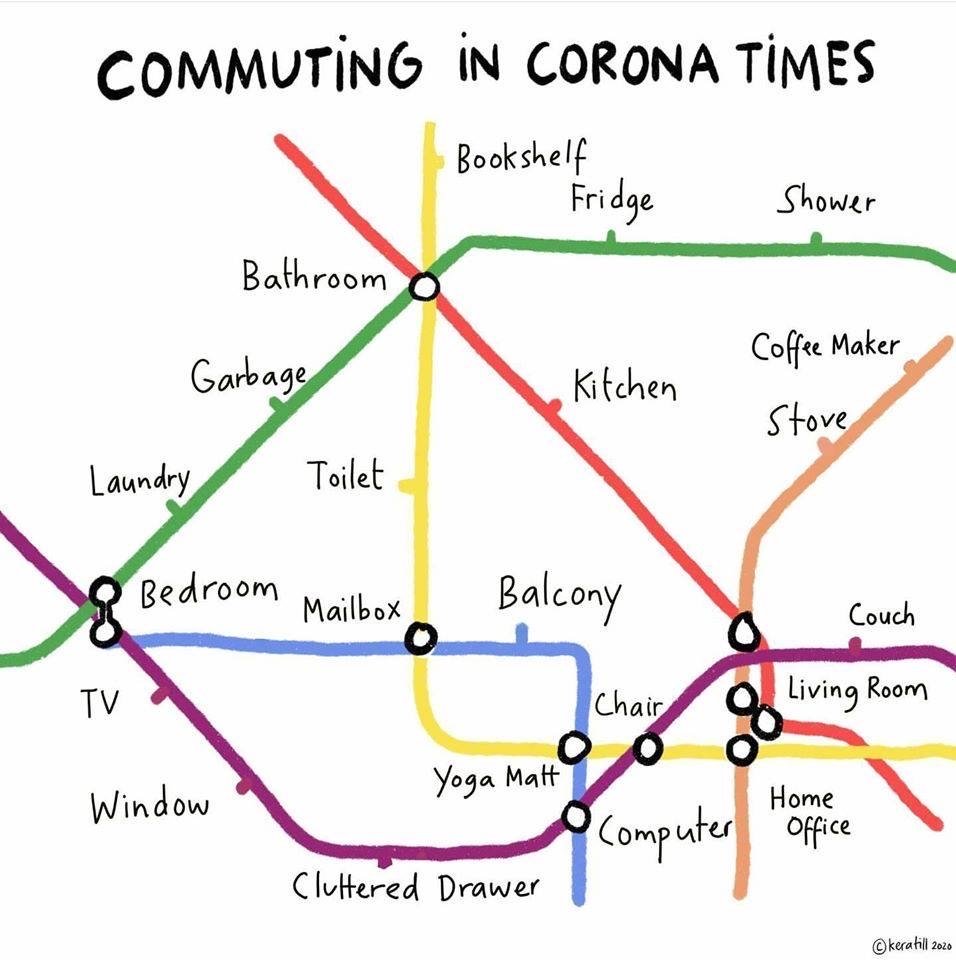 COMMUTING IN CORONA TIMES
Bookshelf
Fridge
Shower
Bathroom
Coffee Maker
Garbage
Kitchen
Stove
Laundry
Toilet
Bedroom
Mailbox
Balcony
Couch
TV
Chair
Living Room
Yoga Matt
Window
Computer
Home
Office
Cluttered Drawer
©keratill 2020